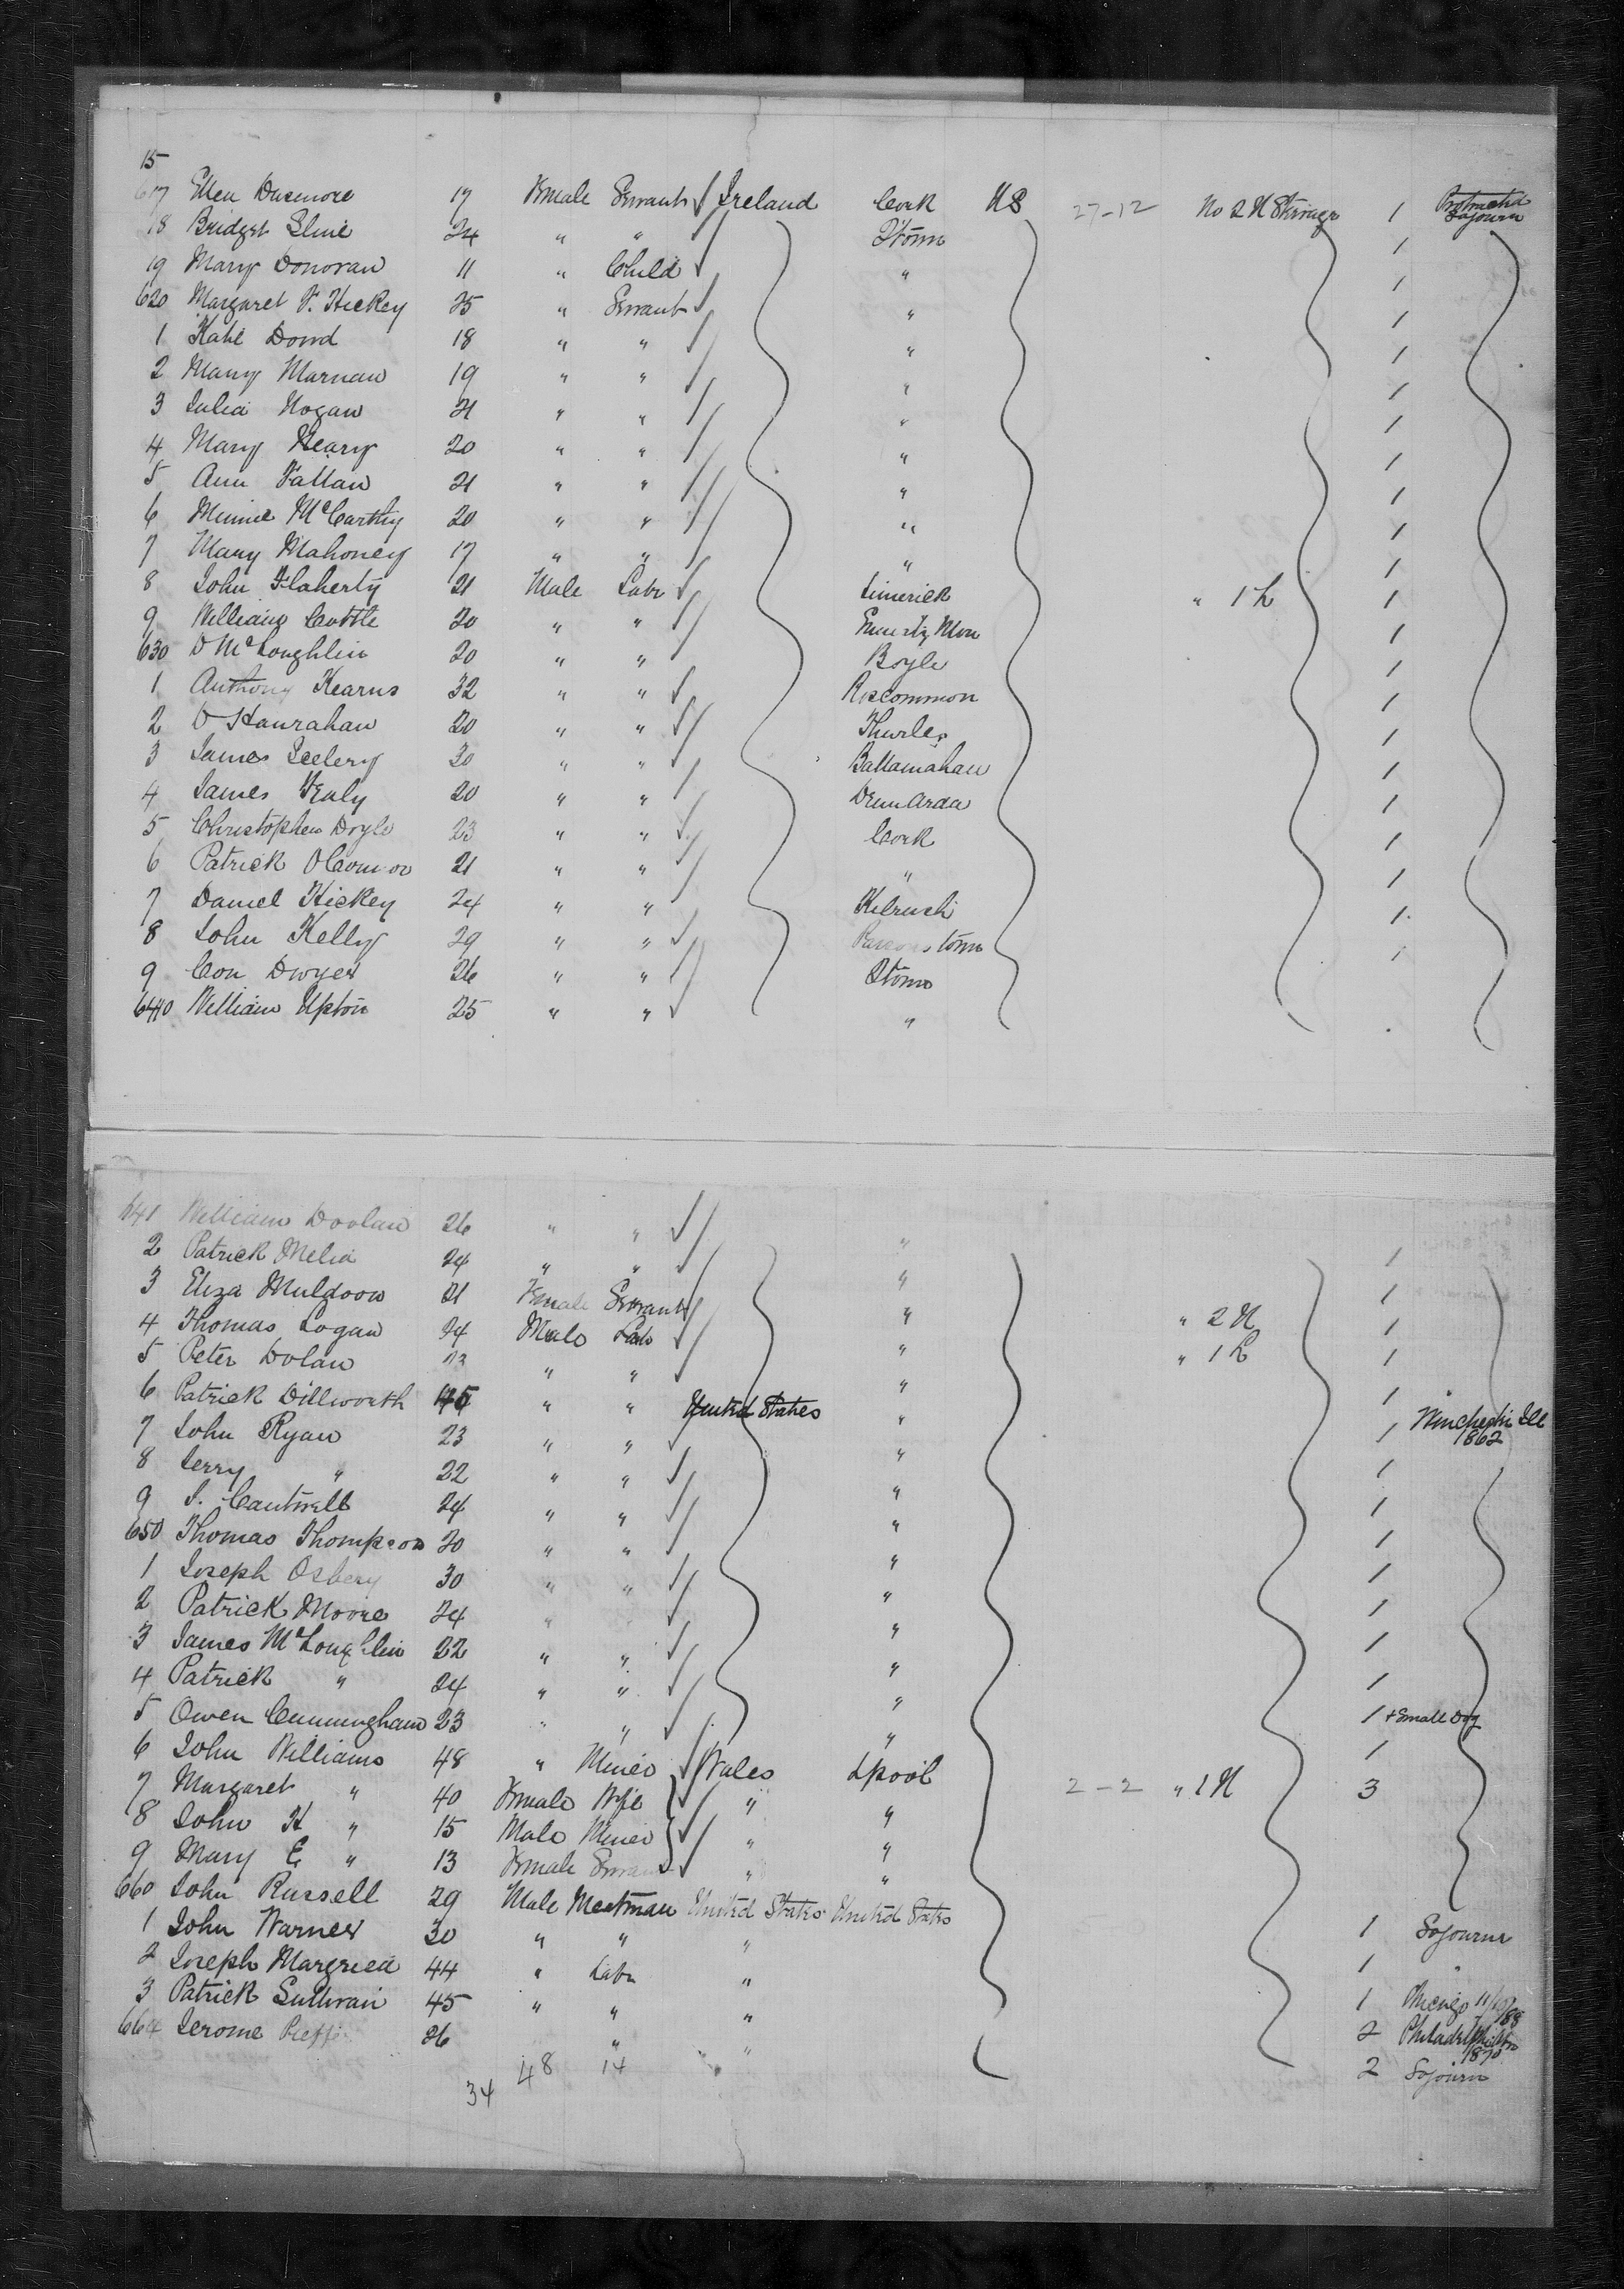 15
617 Ellen Dunmore 17 Female Servant Ireland Cork US 27-12 No 2 H Steerage 1 Protracted Sojourn
18 Bridget Sline 24 " " Qtown 1
19 Mary Donovan 11 " Child " 1
620 Margaret F. Hickey 25 " Servant " 1
1 Kate Dowd 18 " " " 1
2 Mary Marnan 19 " " " 1
3 Julia Hogan 21 " " " 1
4 Mary Neary 20 " " " 1
5 Ann Fallan 21 " " " 1
6 Minnie McCarthy 20 " " " 1
7 Mary Mahoney 17 " " " 1
8 John Flaherty 21 Male Labr Limerick " 1 h 1
9 William Cottle 20 " " 1
630 D McLoughlin 20 " " Boyle 1
1 Anthony Kearns 32 " " Roscommon 1
2 O Hanrahan 20 " " Thurles 1
3 James 30 " " Ballamahan 1
4 James Healy 20 " " Drumarda 1
5 Christopher Doyle 23 " " Cork 1
6 Patrick OConnor 21 " " " 1
7 Daniel Hickey 24 " " Kilrush 1
8 John Kelly 29 " " Parsonstown 1
9 Con Dwyer 26 " " Qtown
640 William Upton 25 " " "
641 William Doolan 26 " " "
2 Patrick Melia 24 " " " 1
3 Eliza Muldoon 21 Female Servant " " 2 H 1
4 Thomas Logan 24 Male Lab " " 1 h 1
5 Peter Dolan 23 " " " 1
6 Patrick Dillworth 45 " " United States " 1 Winchester Ill 1862
7 John Ryan 23 " " " 1
8 Jerry " 22 " " " 1
9 J. Cantwell 24 " " " 1
650 Thomas Thompson 20 " " " 1
1 Joseph Osbery 30 " " " 1
2 Patrick Moore 24 " " 1
3 James McLoughlin 22 " " " 1
4 Patrick " 24 " " " 1
5 Owen Cunningham 23 " " " 1 + Small Dog
6 John Williams 48 " Miner Wales Lpool 2-2 " 1 H 1
7 Margaret " 40 Female Wife " " 3
8 John H " 15 Male Miner " "
9 Mary E " 13 Female Servant " "
660 John Russell 29 Male Meatman United States United States 1 Sojourn
1 John Warner 30 " " " 1 "
2 Joseph 44 " Labr " 1 Chicago
3 Patrick Sullivan 45 " " " 2 Philadelphia 1870
664 Jerome 26 " " 2 Sojourn
34 48 14